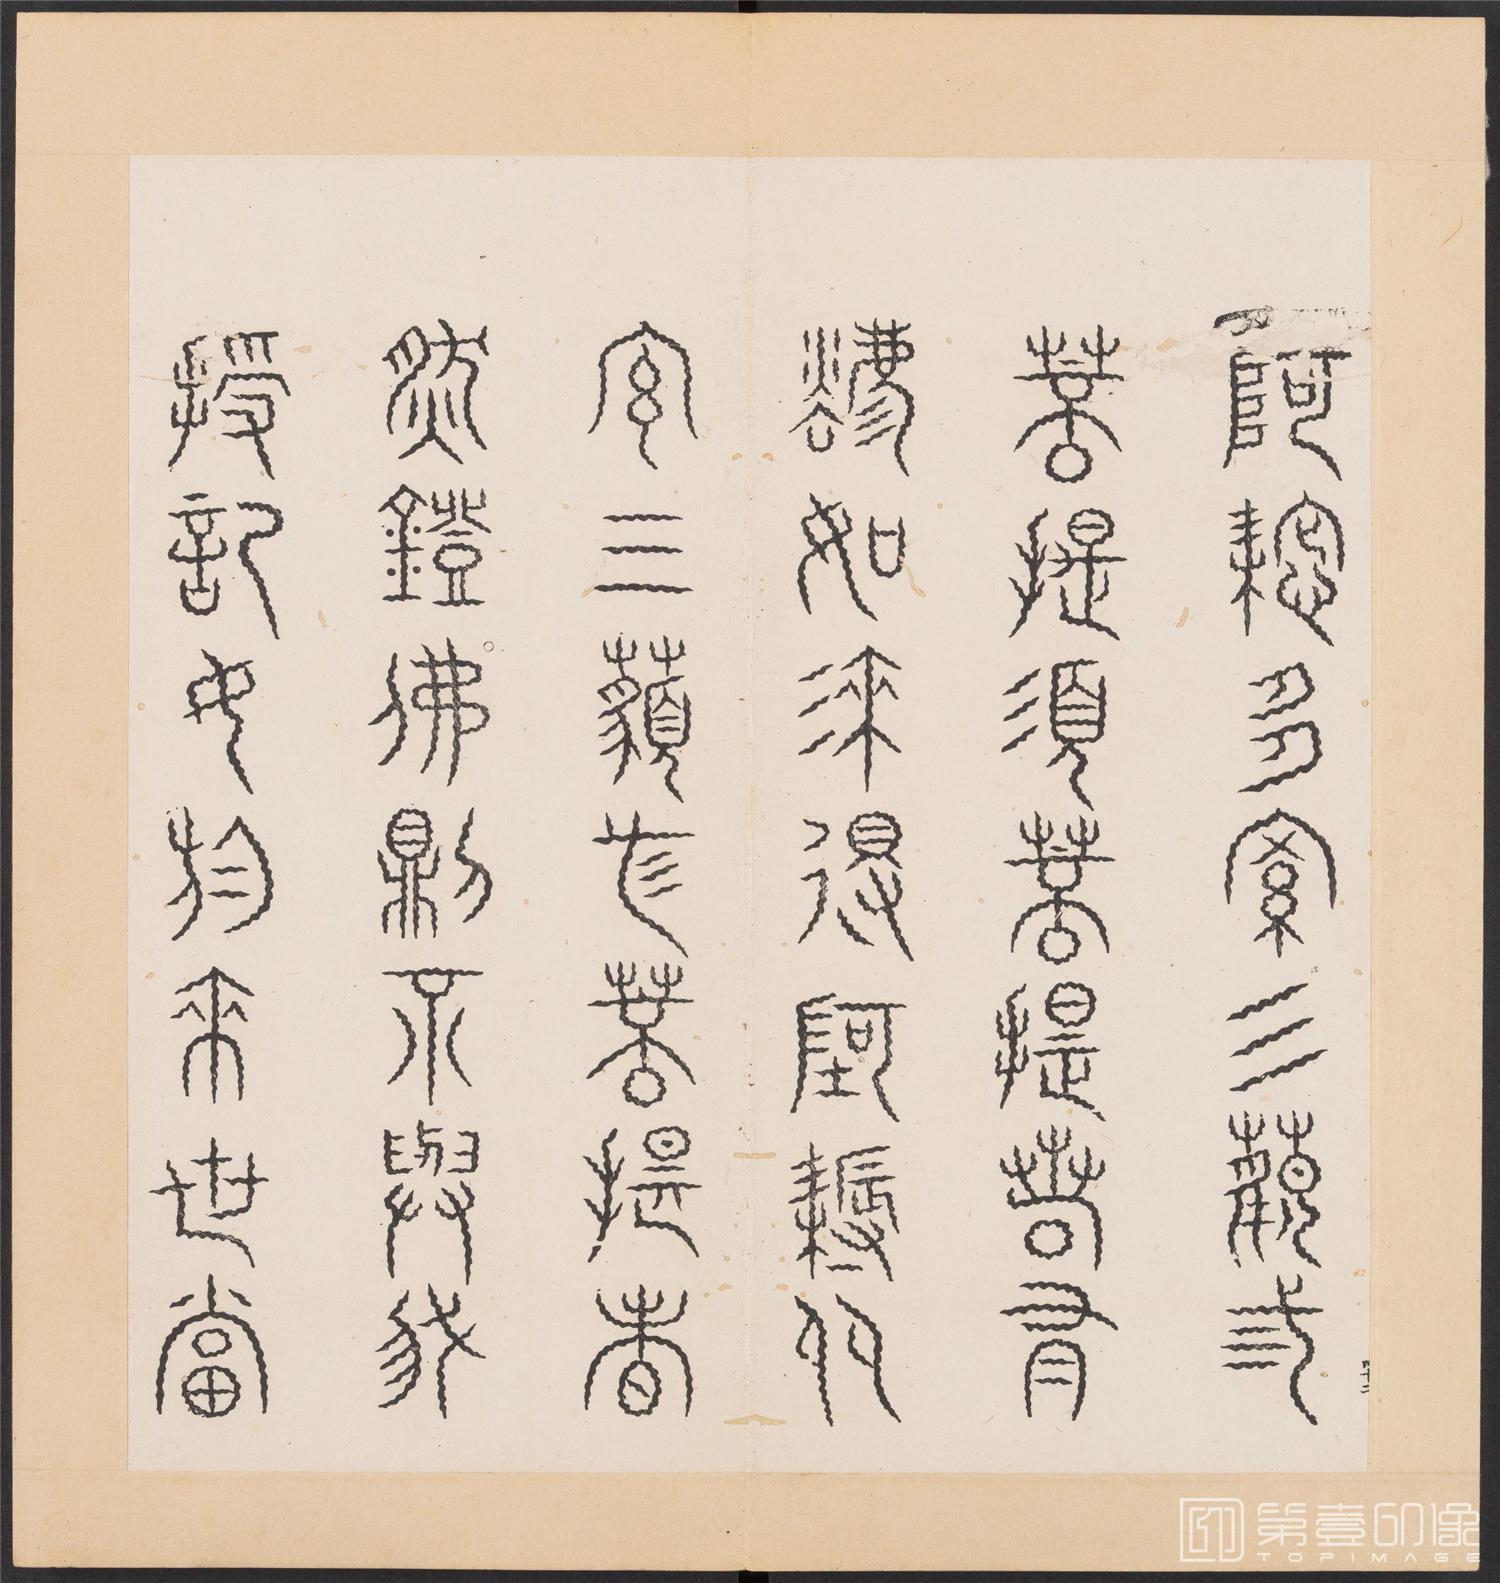 阿耨多羅三藐三
菩提須菩提若有
法如來得阿耨多
羅三藐三菩提者
然鐙佛則不與我
授記汝於來世當
第壹印像
TOPIMAGE